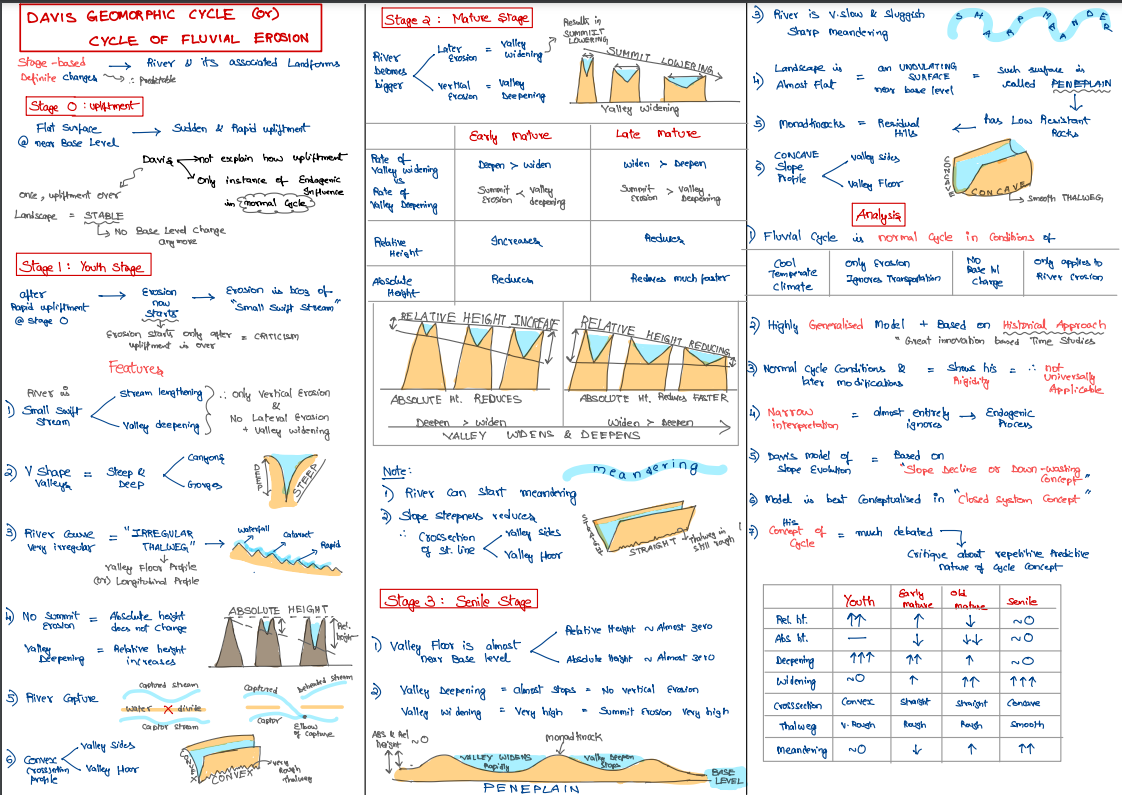 DAVIS GEOMORPHIC CYCLE (Or)
CYCLE OF FLUVIAL EROSION
Stage-based → River & its associated Landforms
Definite changes ∴ Predictable
Stage 0 : upliftment
Flat Surface → Sudden & Rapid upliftment
@ near Base Level
Davis → not explain how upliftment
→ Only instance of Endogenic Influence
in normal Cycle
once, upliftment over
Landscape = STABLE
↳ No Base Level change
anymore
Stage 1 : Youth Stage
after → Erosion → Erosion is bcos of
Rapid upliftment now "Small Swift Stream"
@ stage 0 Starts
Erosion starts only after = CRITICISM
upliftment is over
Features
1) River is Small Swift Stream
Stream lengthening
Valley deepening
∴ only Vertical Erosion
&
No Lateral Erosion
+ Valley widening
2) V Shape Valleys = Steep & Deep
Canyons
Gorges
DEEP
STEEP
3) River Course = "IRREGULAR →
Very irregular THALWEG"
Valley Floor Profile
(or) Longitudinal Profile
waterfall
cataract
Rapid
4) NO Summit = Absolute height
Erosion does not change
Valley = Relative height
Deepening increases
ABSOLUTE HEIGHT
Rel. height
5) River Capture
Captured stream
water × divide
Captor stream
Captured
Beheaded stream
Captor
Elbow of Capture
6) Convex Crosssection Profile
Valley sides
Valley floor
CONVEX
CONVEX
Very Rough Thalweg
Stage 2 : Mature Stage
River becomes bigger
Later Erosion = Valley Widening
Vertical Erosion = Valley Deepening
Results in
SUMMIT LOWERING
SUMMIT LOWERING
Valley Widening
Early Mature
Late Mature
Rate of Valley widening
is
Rate of Valley Deepening
Deepen > widen
widen > Deepen
Summit Erosion < Valley deepening
Summit Erosion > Valley Deepening
Relative Height
Increases
Reduces
Absolute Height
Reduces
Reduces much faster
RELATIVE HEIGHT INCREASE
RELATIVE HEIGHT REDUCING
ABSOLUTE Ht. REDUCES
ABSOLUTE Ht. Reduces FASTER
Deepen > widen
Widen > Deepen
VALLEY WIDENS & DEEPENS
Note:
meandering
1) River can start meandering
2) Slope steepness reduces
∴ Crosssection of st. line
Valley sides
Valley floor
Straight
STRAIGHT
Thalweg is still rough
Stage 3 : Senile Stage
1) Valley Floor is almost near Base level
Relative Height ~ Almost zero
Absolute Height ~ Almost zero
2) Valley Deepening = almost stops = No vertical Erosion
Valley widening = Very high = Summit Erosion very high
ABS & Rel Height ~ 0
monadnock
VALLEY WIDENS Rapidly
Valley Deepen Stops
BASE LEVEL
PENEPLAIN
3) River is v.slow & sluggish
Sharp meandering
SHARP MEANDER
4) Landscape is = an UNDULATING = such surface is
Almost Flat SURFACE called PENEPLAIN
near base level
5) Monadknocks = Residual Hills ← has Low Resistant Rocks
6) CONCAVE Slope Profile
Valley sides
Valley Floor
CONCAVE
CONCAVE
Smooth THALWEG
Analysis
1) Fluvial Cycle is normal cycle in conditions of
Cool Temperate Climate
Only Erosion Ignores Transportation
No Base lvl Change
Only applies to River Erosion
2) Highly Generalised Model + Based on Historical Approach
= Great innovation based Time Studies
3) Normal Cycle Conditions & = shows his = ∴ not
later modifications Rigidity Universally
Applicable
4) Narrow = almost entirely → Endogenic
interpretation ignores Process
5) Davis model of = Based on
Slope Evolution "Slope Decline or Down-wasting Concept"
6) Model is best Conceptualised in "Closed system Concept"
7) His Concept of Cycle = much debated
Critique about repetitive Predictive
nature of cycle Concept
Youth Early mature Old mature Senile
Rel. ht. ↑↑ ↑ ↓ ~0
Abs ht. — ↓ ↓↓ ~0
Deepening ↑↑↑ ↑↑ ↑ ~0
Widening ~0 ↑ ↑↑ ↑↑↑
Crosssection Convex Straight Straight Concave
Thalweg V. Rough Rough Rough Smooth
Meandering ~0 ↓ ↑ ↑↑